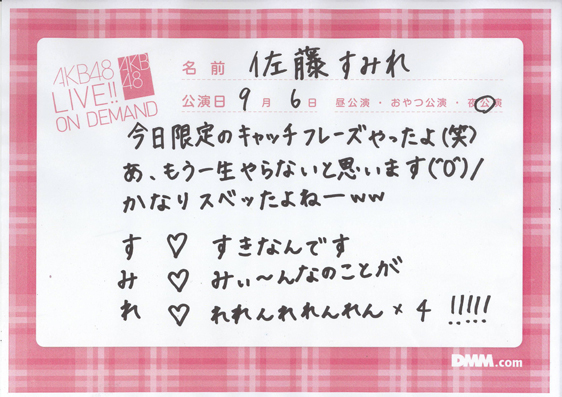 AKB48
LIVE!!
ON DEMAND
AKB
48
名前 佐藤すみれ
公演日 9月 6日 昼公演・おやつ公演・夜公演
今日限定のキャッチフレーズやったよ(笑)
あ、もう一生やらないと思います(ﾟOﾟ)/
かなりスベッたよねーww
す ♡ すきなんです
み ♡ みぃ〜んなのことが
れ ♡ れれんれれんれん×4 !!!!!
DMM.com